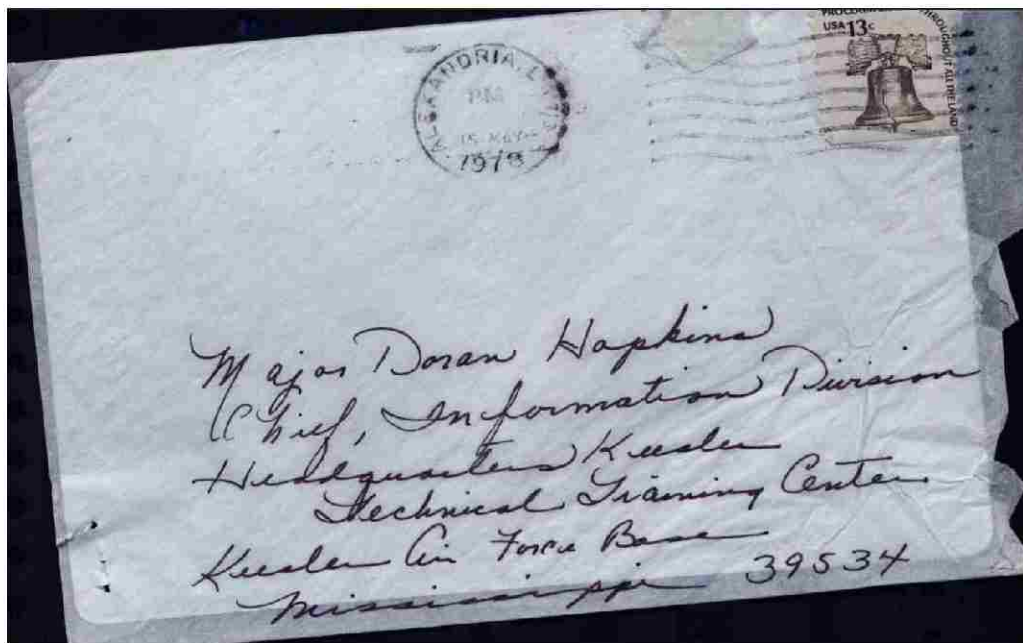 ALEXANDRIA, L
PM
15 MAY
1978
USA 13c
THROUGHOUT ALL THE LAND
Major Doran Hopkins
Chief, Information Division
Headquarters Keesler
Technical Training Center
Keesler Air Force Base
Mississippi 39534